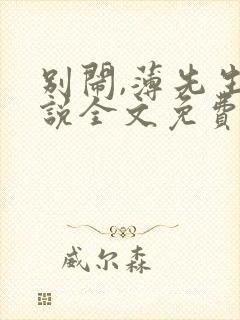 别闹,薄先生
說全文免費
威尔森